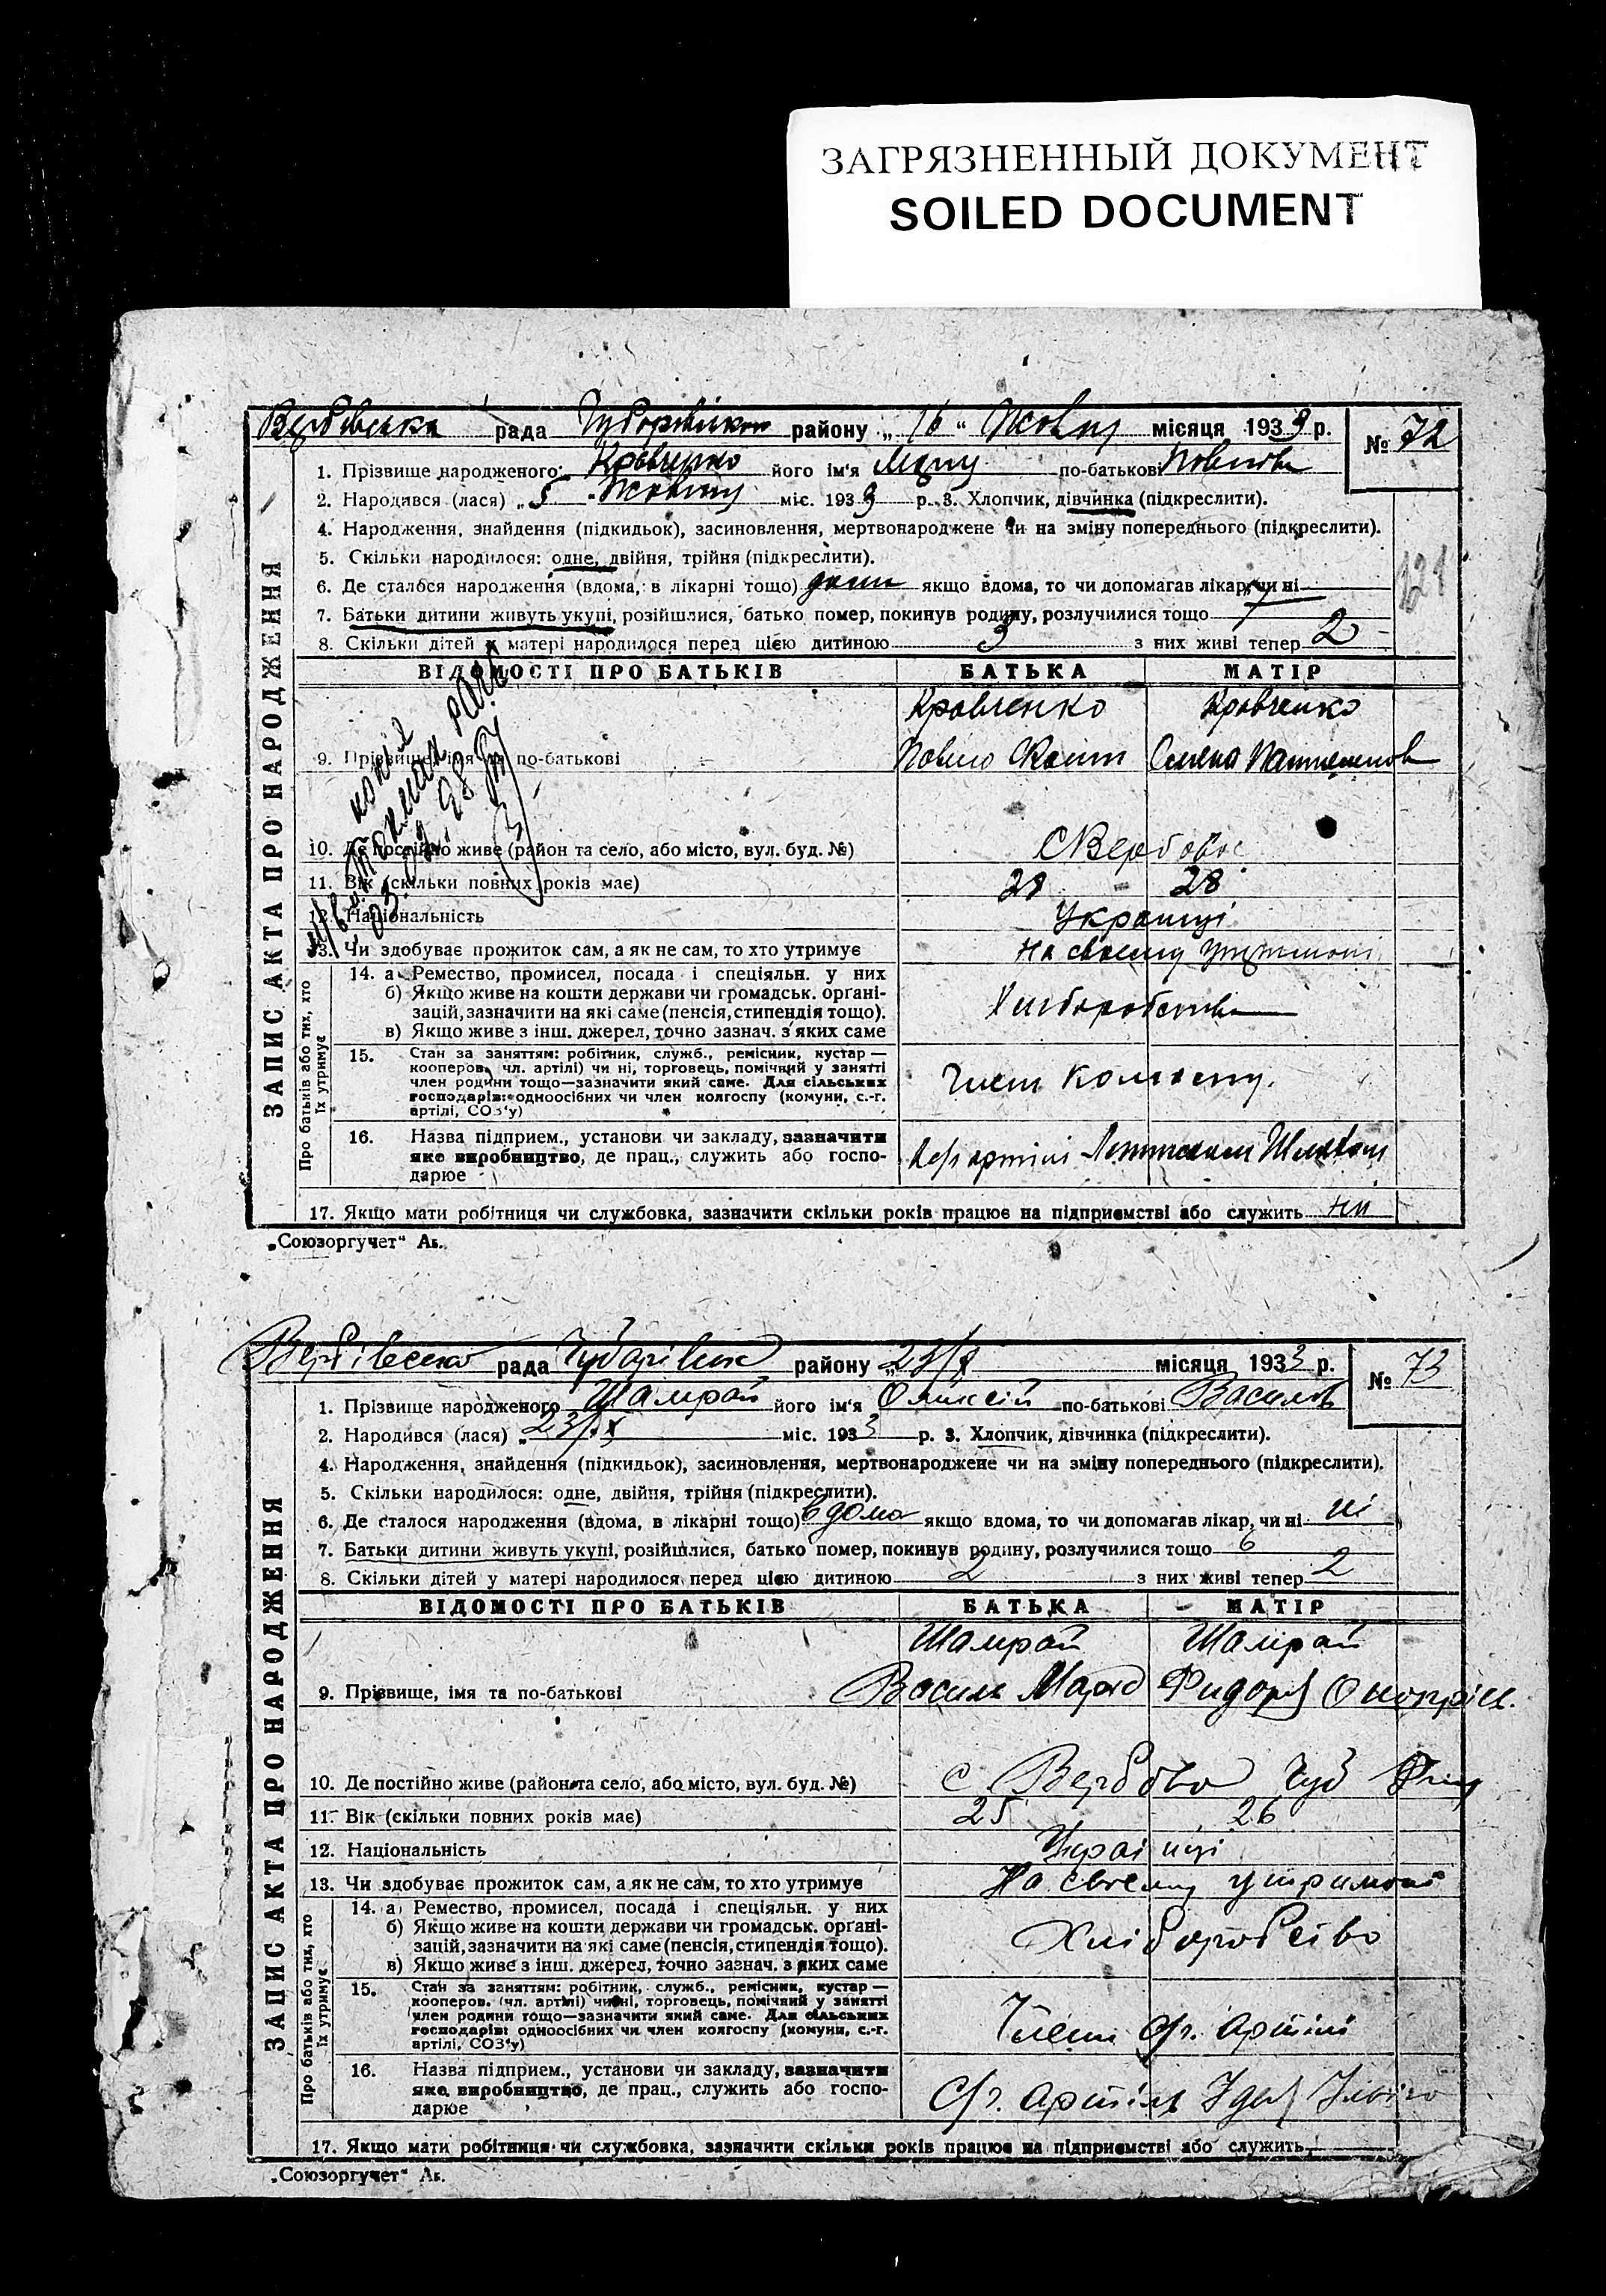 ЗАГРЯЗНЕННЫЙ ДОКУМЕНТ
SOILED DOCUMENT
Вербівська рада району „16“ Жовтн місяця 1933 р. № 72
1. Прізвище народженого Кравченко його ім'я по-батькові Павлова
2. Народився (лася) „5 Жовтну міс. 1933 р. 3. Хлопчик, дівчинка (підкреслити).
4. Народження, знайдення (підкидьок), засиновлення, мертвонароджене чи на зміну попереднього (підкреслити).
5. Скільки народилося: одне, двійня, трійня (підкреслити).
6. Де сталося народження (вдома, в лікарні тощо) якщо вдома, то чи допомагав лікар, чи ні
7. Батьки дитини живуть укупі, розійшлися, батько помер, покинув родину, розлучилися тощо
8. Скільки дітей у матері народилося перед цією дитиною 3 з них живі тепер 2
121
ЗАПИС АКТА ПРО НАРОДЖЕННЯ
ВІДОМОСТІ ПРО БАТЬКІВ БАТЬКА МАТІР
Кравченко Кравченко
9. Прізвище, імя та по-батькові Павло
копія
10. Де постійно живе (район та село, або місто, вул. буд. №) С Вербове
11. Вік (скільки повних років має) 28 28
12. Національність Українці
13. Чи здобуває прожиток сам, а як не сам, то хто утримує на своєму утриманні
Про батьків або тих, хто їх утримує
14. а Ремество, промисел, посада і спеціяльн. у них
б) Якщо живе на кошти держави чи громадськ. органі-
зацій, зазначити на які саме (пенсія, стипендія тощо).
в) Якщо живе з інш. джерел, точно зазнач. з яких саме
Хліборобство
15. Стан за заняттям: робітник, служб., ремісник, кустар —
кооперов. чл. артілі) чи ні, торговець, помічний у занятті
член родини тощо—зазначити який саме. Для сільських
господарів: одноосібних чи член колгоспу (комуни, с.-г.
артілі, СОЗ'у)
Член колгоспу.
16. Назва підприєм., установи чи закладу, зазначити
яке виробництво, де прац., служить або госпо-
дарює
артілі Шляхом
17. Якщо мати робітниця чи службовка, зазначити скільки років працює на підприємстві або служить ні
„Союзоргучет“ Аь.
Вербівська рада Чубарівськ району „23/X місяця 1933 р. № 73
1. Прізвище народженого Шамрай його ім'я Олексій по-батькові Васильов
2. Народився (лася) „23/X міс. 1933 р. 3. Хлопчик, дівчинка (підкреслити).
4. Народження, знайдення (підкидьок), засиновлення, мертвонароджене чи на зміну попереднього (підкреслити).
5. Скільки народилося: одне, двійня, трійня (підкреслити).
6. Де сталося народження (вдома, в лікарні тощо) вдома якщо вдома, то чи допомагав лікар, чи ні ні
7. Батьки дитини живуть укупі, розійшлися, батько помер, покинув родину, розлучилися тощо 6
8. Скільки дітей у матері народилося перед цією дитиною 2 з них живі тепер 2
ЗАПИС АКТА ПРО НАРОДЖЕННЯ
ВІДОМОСТІ ПРО БАТЬКІВ БАТЬКА МАТІР
Шамрай Шамрай
9. Прізвище, імя та по-батькові Василь Марк
10. Де постійно живе (район та село, або місто, вул. буд. №) с Вербово Чуб
11. Вік (скільки повних років має) 25 26
12. Національність Українці
13. Чи здобуває прожиток сам, а як не сам, то хто утримує На своєму утримані
Про батьків або тих, хто їх утримує
14. а) Ремество, промисел, посада і спеціяльн. у них
б) Якщо живе на кошти держави чи громадськ. органі-
зацій, зазначити на які саме (пенсія, стипендія тощо).
в) Якщо живе з інш. джерел, точно зазнач. з яких саме
Хліборобство
15. Стан за заняттям: робітник, служб., ремісник, кустар —
кооперов. (чл. артілі) чи ні, торговець, помічний у занятті
член родини тощо—зазначити який саме. Для сільських
господарів: одноосібних чи член колгоспу (комуни, с.-г.
артілі, СОЗ'у)
Член с/г. артілі
16. Назва підприєм., установи чи закладу, зазначити
яке виробництво, де прац., служить або госпо-
дарює
С/г. артіль Ілліча
17. Якщо мати робітниця чи службовка, зазначити скільки років працює на підприємстві або служить
„Союзоргучет“ Аь.